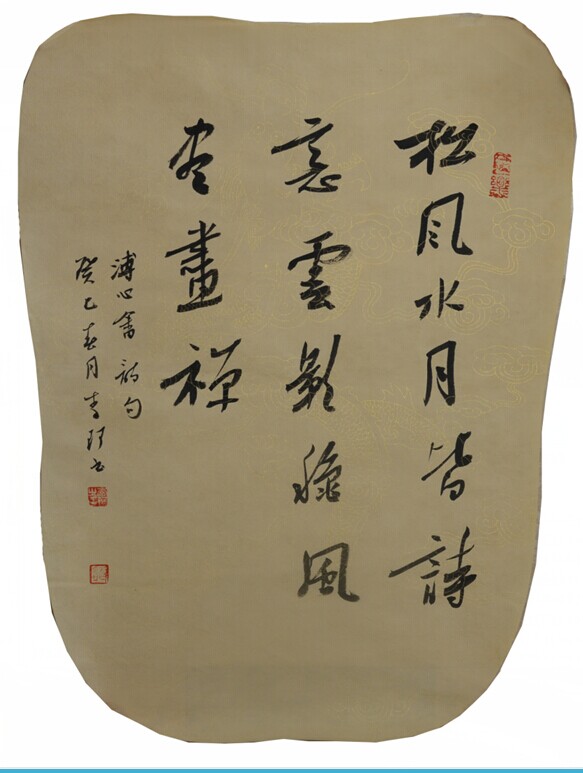 松风水月皆詩
意雲影穐風
尽畫禅
溥心畬詩句
癸巳春月青书